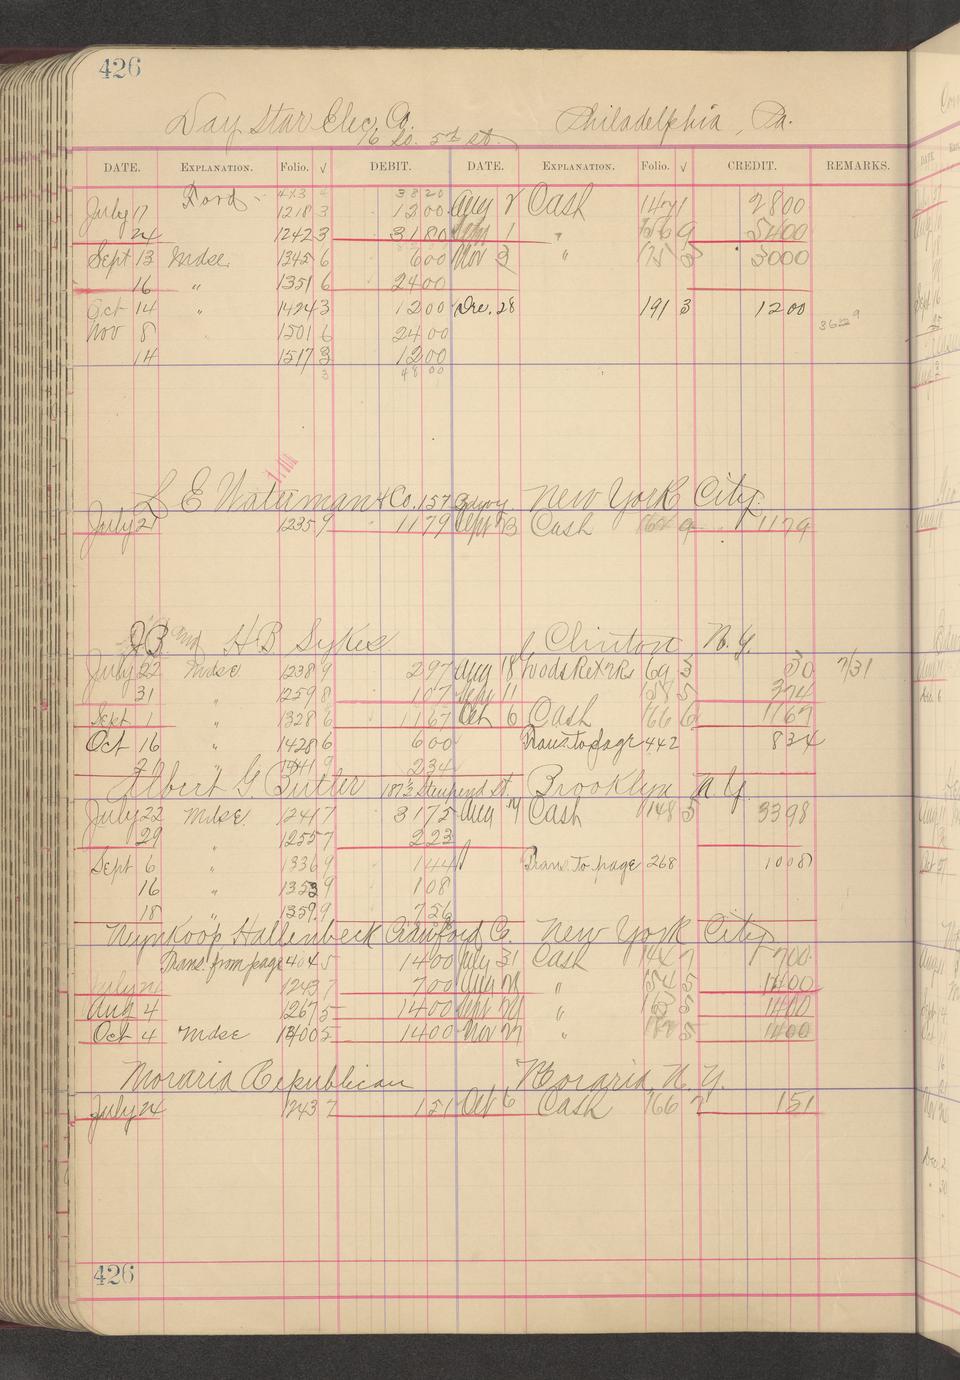 426
Day Star Elec. Co. Philadelphia, Pa.
16 So. 5th St.
DATE. EXPLANATION. Folio. √ DEBIT. DATE. EXPLANATION. Folio. √ CREDIT. REMARKS.
38 20
July 17 1218 3 12 00 Aug 2 Cash 147 1 28 00
24 1242 3 31 80 Sept 1 " 156 9 54 00
Sept 13 Mdse 1345 6 6 00 Nov 3 " 175 3 30 00
16 " 1351 6 24 00
Oct 14 " 1424 3 12 00 Dec. 28 191 3 12 00
Nov 8 1501 6 24 00
14 1517 3 12 00
3 48 00
L E Waterman & Co. 157 Bdwy New York City
July 21 1235 9 11 79 Sept 13 Cash 9 11 79
H B Sykes Clinton N.Y.
July 22 Mdse 1238 9 2 97 Aug 18 Goods Ret'n 69 3 30 7/31
31 " 1259 8 1 07 Sept 11 3 74
Sept 1 " 1328 6 11 67 Oct 6 Cash 166 6 11 67
Oct 16 " 1428 6 6 00 Trans to page 442 8 34
" 1441 9 2 34
Albert G. Butler 187½ St. Brooklyn N.Y.
July 22 Mdse 1241 7 31 75 Aug Cash 148 5 33 98
29 " 1255 7 2 23
Sept 6 " 1336 9 1 44 Trans. To page 268 10 08
16 " 1353 9 1 08
18 " 1359 9 7 56
Wynkoop Hallenbeck Crawford Co. New York City
Trans. from page 404 5 14 00 July 31 Cash 144 7 7 00
1243 7 7 00 Aug " 154 5 14 00
Aug 4 1267 5 14 00 Sept " 5 14 00
Oct 4 Mdse 1400 5 14 00 Nov 27 " 5 14 00
Moravia Republican Moravia, N.Y.
July 24 1243 7 1 51 Oct 6 Cash 166 7 1 51
426